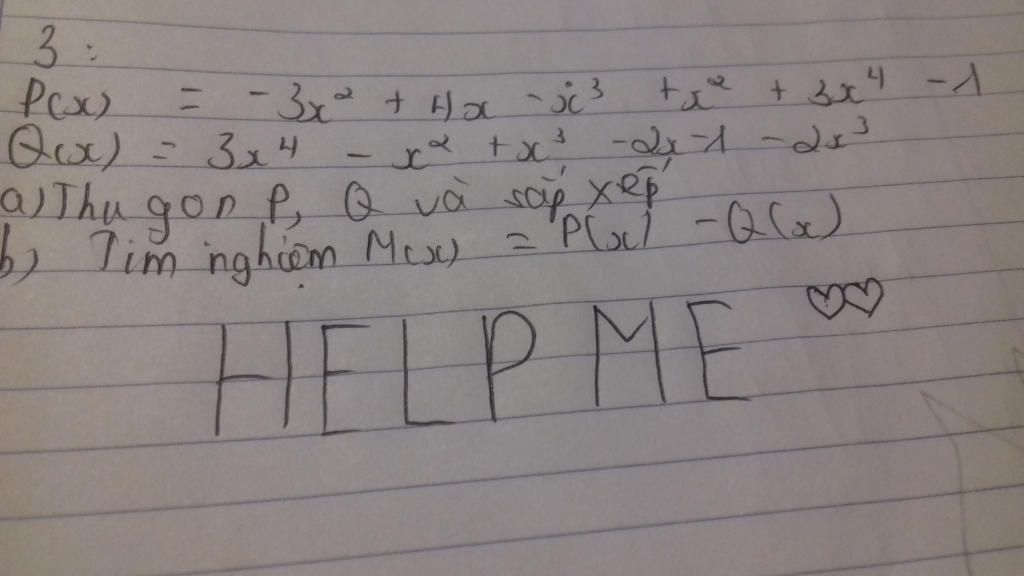 3:
P(x) = -3x² + 4x - x³ + x² + 3x⁴ - 1
Q(x) = 3x⁴ - x² + x³ - 2x - 1 - 2x³
a) Thu gọn P, Q và sắp xếp
b) Tìm nghiệm M(x) = P(x) - Q(x)
HELP ME ♡♡